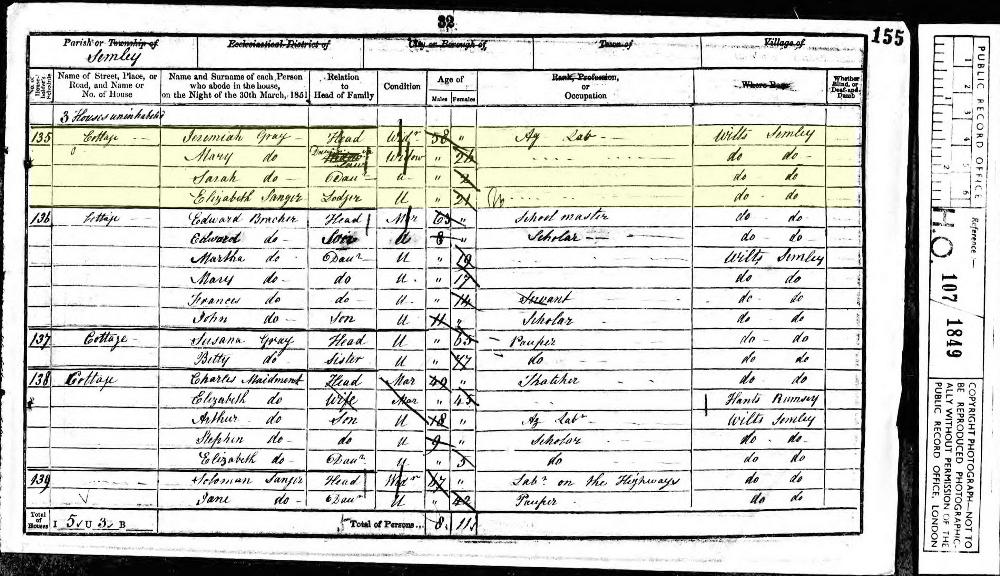 32
155
Parish or Township of Ecclesiastical District of City or Borough of Town of Village of
Semley
No. of House-holder's Schedule Name of Street, Place, or Road, and Name or No. of House Name and Surname of each Person who abode in the house, on the Night of the 30th March, 1851 Relation to Head of Family Condition Age of Males Females Rank, Profession, or Occupation Where Born Whether Blind, or Deaf-and-Dumb
3 Houses uninhabited
135 Cottage Jeremiah Gray Head Widr 58 " Ag Lab Wilts Semley
Mary do Daur in Law Widow " 26 do do
Sarah do Daur U " 2 do do
Elizabeth Sanger Lodger U " 21 do do
136 Cottage Edward Bracher Head Mar 63 " School master do do
Edward do Son U 8 " Scholar do do
Martha do Daur U " 19 Wilts Semley
Mary do do U " 17 do do
Frances do do U " 14 Servant do do
John do Son U 11 " Scholar do do
137 Cottage Susana Gray Head U " 65 Pauper do do
Betty do Sister U " 77 do do do
138 Cottage Charles Maidment Head Mar 49 " Thatcher do do
Elizabeth do Wife Mar " 45 Hants Rumsey
Arthur do Son U 18 " Ag Labr Wilts Semley
Stephen do do U 9 " Scholar do do
Elizabeth do Daur U " 5 do do do
139 Soloman Sanger Head Widr 67 " Labr on the Highways do do
Jane do Daur U " 42 Pauper do do
Total of Houses I 5 U 3 B Total of Persons 8 11
PUBLIC RECORD OFFICE
Reference:-
H.O. 107 1849
COPYRIGHT PHOTOGRAPH—NOT TO
BE REPRODUCED PHOTOGRAPHIC-
ALLY WITHOUT PERMISSION OF THE
PUBLIC RECORD OFFICE, LONDON